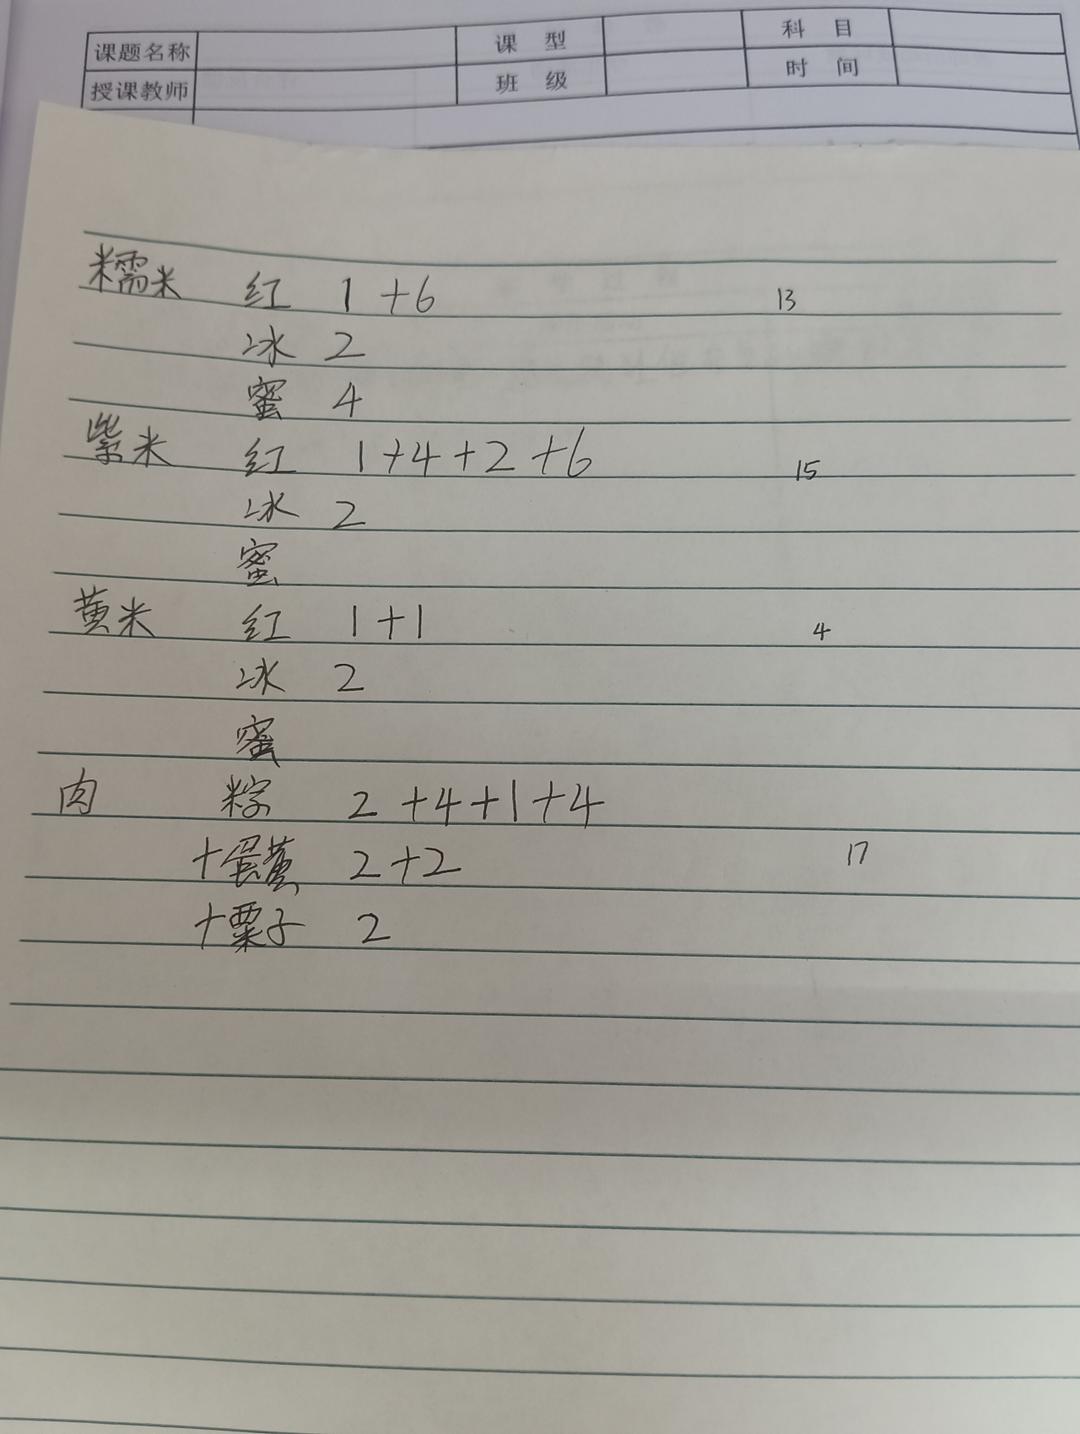 课题名称 课 型 科 目
授课教师 班 级 时 间
糯米 红 1+6 13
冰 2
蜜 4
紫米 红 1+4+2+6 15
冰 2
蜜
黄米 红 1+1 4
冰 2
蜜
肉 粽 2+4+1+4
+蛋黄 2+2 17
+栗子 2